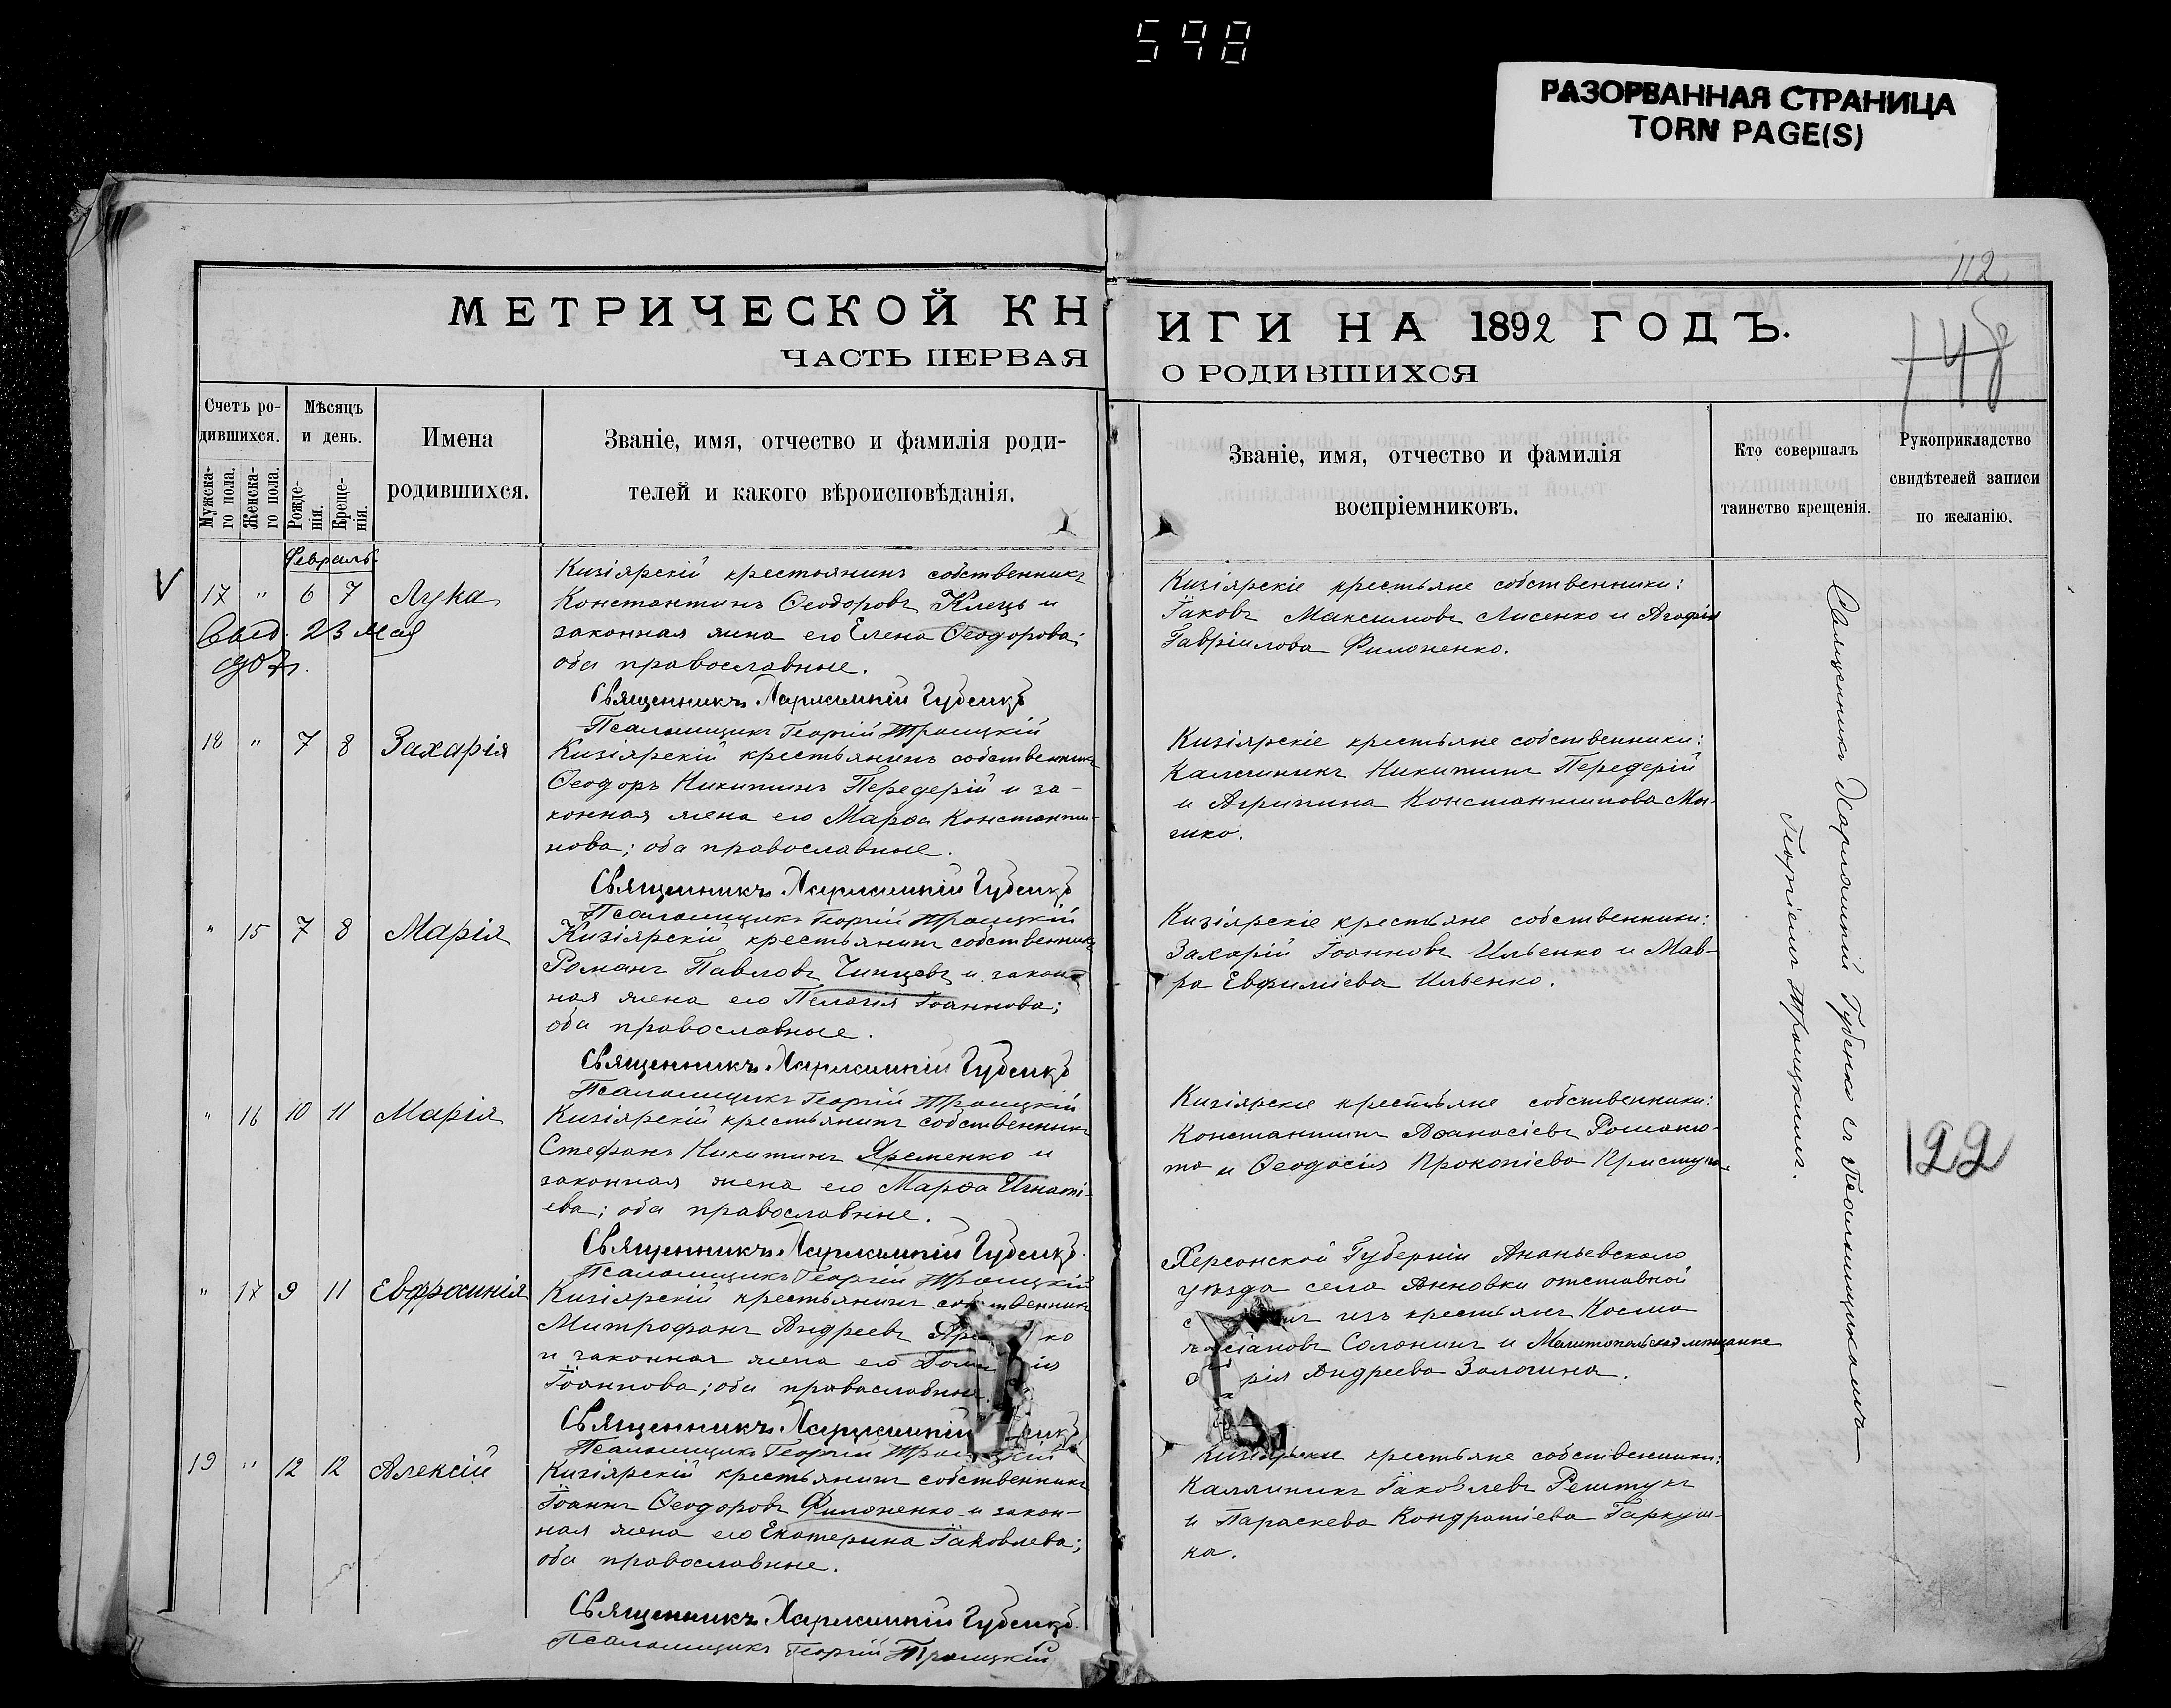 598
РАЗОРВАННАЯ СТРАНИЦА
TORN PAGE(S)
112
МЕТРИЧЕСКОЙ КН
ИГИ НА 1892 ГОДЪ.
ЧАСТЬ ПЕРВАЯ
О РОДИВШИХСЯ
Счетъ ро-
дившихся.
Мужска-
го пола.
Женска-
го пола.
Мѣсяцъ
и день.
Рожде-
нія.
Креще-
нія.
Имена
родившихся.
Званіе, имя, отчество и фамилія роди-
телей и какого вѣроисповѣданія.
Званіе, имя, отчество и фамилія
воспріемниковъ.
Кто совершалъ
таинство крещенія.
Рукоприкладство
свидѣтелей записи
по желанію.
Февраль.
17 " 6 7 Лука
23 мая
Кизіярскій крестьянинъ собственникъ
Константинъ Ѳеодоровъ Клецъ и
законная жена его Елена Ѳеодорова;
оба православные.
Священникъ Харлампій Губенко
Псаломщикъ Георгій Троицкій
Кизіярскіе крестьяне собственники:
Іаковъ Максимовъ Лисенко и Агафія
Гавріилова Филоненко.
18 " 7 8 Захарія
Кизіярскій крестьянинъ собственникъ
Ѳеодоръ Никитинъ Передерій и за-
конная жена его Марѳа Константи-
нова; оба православные.
Священникъ Харлампій Губенко
Псаломщикъ Георгій Троицкій
Кизіярскіе крестьяне собственники:
Каллиникъ Никитинъ Передерій
и Агрипина Константинова
" 15 7 8 Марія
Кизіярскій крестьянинъ собственникъ
Романъ Павловъ и закон-
ная жена его Пелагія Іоаннова;
оба православные.
Священникъ Харлампій Губенко
Псаломщикъ Георгій Троицкій
Кизіярскіе крестьяне собственники:
Захарій Іоанновъ Ильенко и Мав-
ра Евфиміева Ильенко.
" 16 10 11 Марія
Кизіярскій крестьянинъ собственникъ
Стефанъ Никитинъ Яременко и
законная жена его Марѳа Игнаті-
ева; оба православные.
Священникъ Харлампій Губенко
Псаломщикъ Георгій Троицкій
Кизіярскіе крестьяне собственники:
Константинъ Аѳанасіевъ
и Ѳеодосія Прокопіева
122
" 17 9 11 Евфросинія
Кизіярскій крестьянинъ собственникъ
Митрофанъ Андреевъ
и законная жена его
Іоаннова; оба православные.
Священникъ Харлампій
Псаломщикъ Георгій Троицкій
Херсонской Губерніи Ананьевскаго
уѣзда села Анновки отставной
изъ крестьянъ Косма
Солонинъ и Мелитопольская мѣщанка
рія Андреева Залогина.
19 " 12 12 Алексій
Кизіярскій крестьянинъ собственникъ
Іоаннъ Ѳеодоровъ Филоненко и закон-
ная жена его Екатерина Іаковлева;
оба православные.
Священникъ Харлампій Губенко
Псаломщикъ Георгій Троицкій
Кизіярскіе крестьяне собственники:
Каллиникъ Іаковлевъ Рештукъ
и Параскева Кондратіева Гаркуш-
ка.
Священникъ Харлампій Губенко съ Псаломщикомъ
Георгіемъ Троицкимъ.